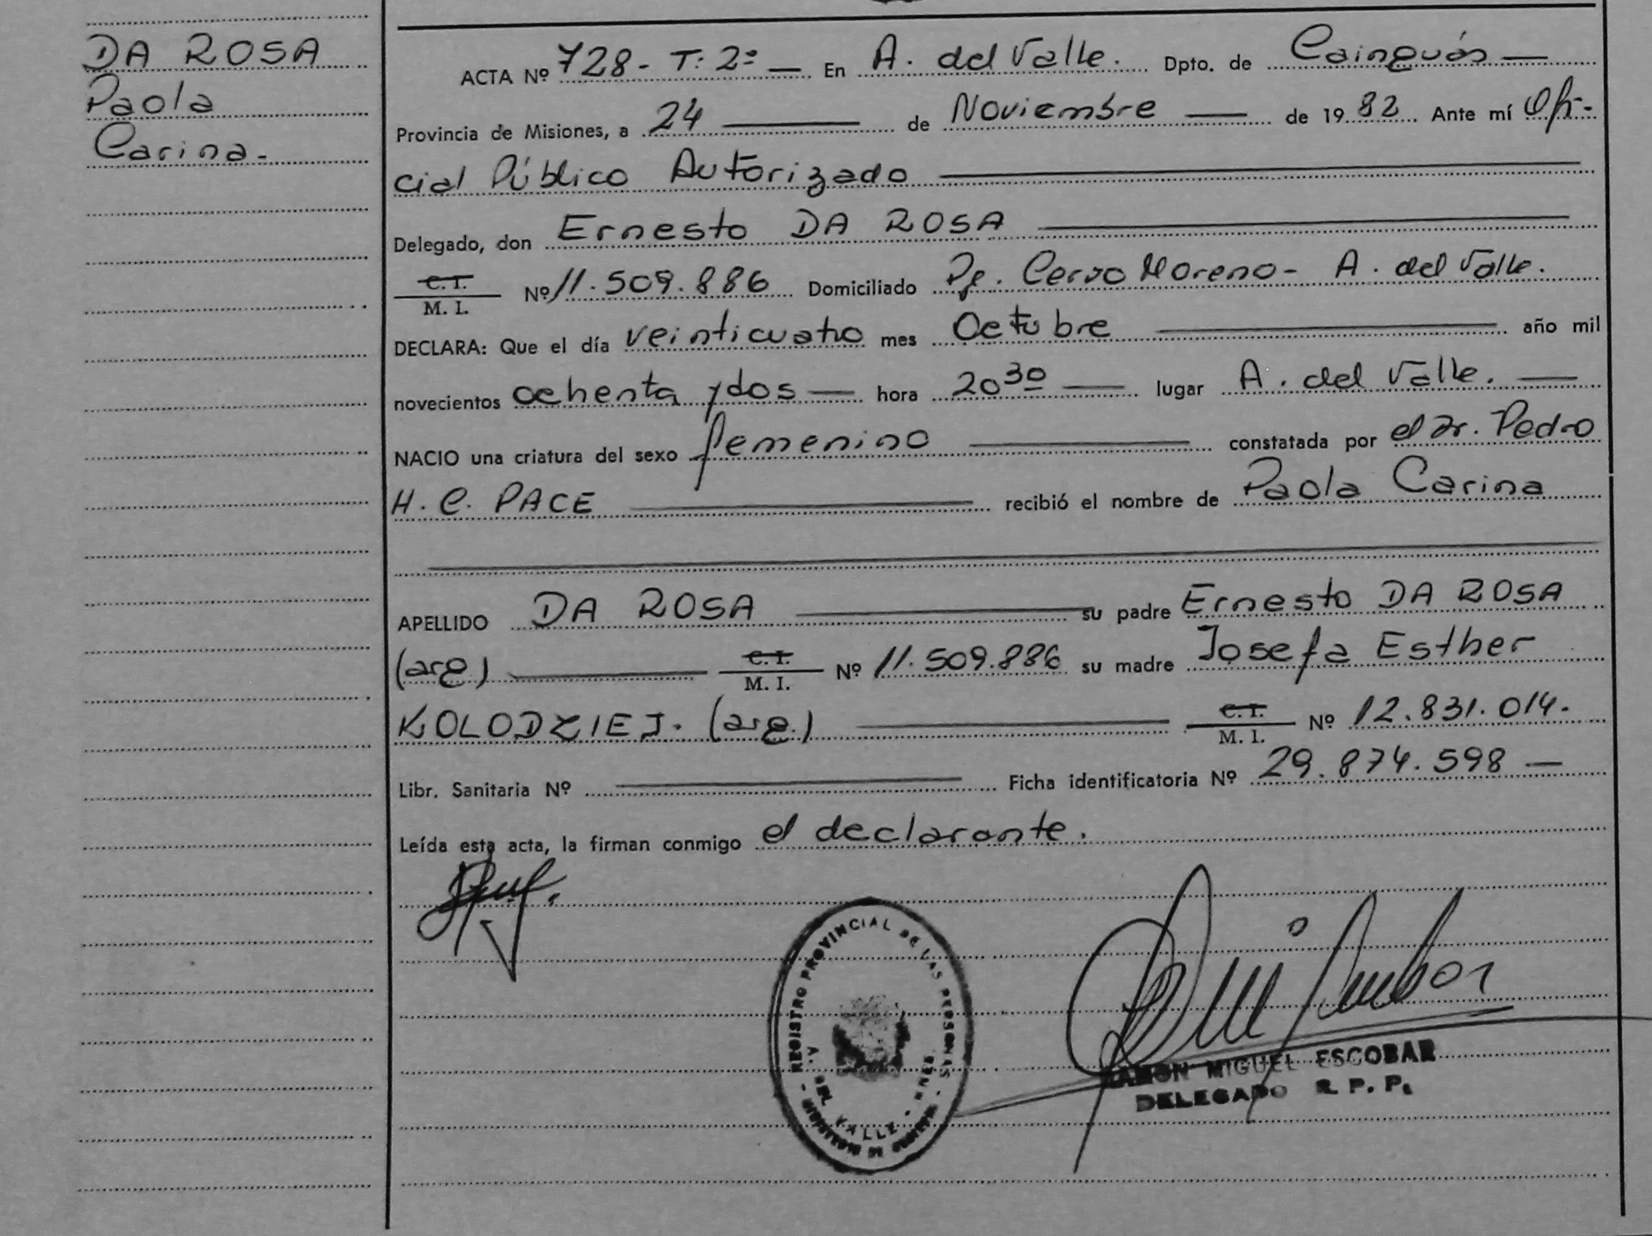 DA ROSA
Paola
Carina-
ACTA Nº 728- T: 2º — En A. del Valle. Dpto. de Cainguás —
Provincia de Misiones, a 24 — de Noviembre — de 19 82 Ante mí Ofi-
cial Público Autorizado —
Delegado, don Ernesto DA ROSA —
C. I.
M. I. Nº 11.509.886 Domiciliado Pje. Cerro Moreno- A. del Valle.
DECLARA: Que el día veinticuatro mes Octubre — año mil
novecientos ochenta y dos — hora 20 30 — lugar A. del Valle. —
NACIO una criatura del sexo femenino — constatada por el Dr. Pedro
H. C. PACE — recibió el nombre de Paola Carina
APELLIDO DA ROSA — su padre Ernesto DA ROSA
(arg) — C. I.
M. I. Nº 11.509.886 su madre Josefa Esther
KOLODZIEJ. (arg.) — C. I.
M. I. Nº 12.831.014.
Libr. Sanitaria Nº — Ficha identificatoria Nº 29.874.598 —
Leída esta acta, la firman conmigo el declarante.
REGISTRO PROVINCIAL DE LAS PERSONAS
A. DEL VALLE - MNES.
MINISTERIO DE GOBIERNO
RAMON MIGUEL ESCOBAR
DELEGADO R. P. P.